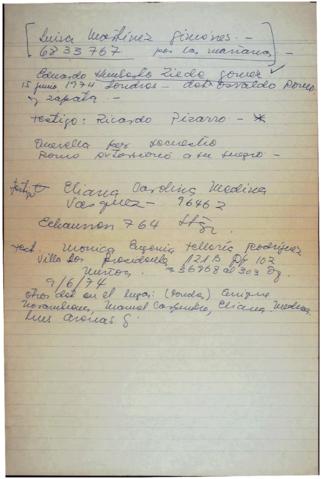 Luisa Martínez Jimenes. -
6833767 por las mañanas -
Eduardo Humberto Ziede Gomez ✓
15 junio 1974 Londres - det. Osvaldo Romo
y Zapata -
testigo: Ricardo Pizarro -
Querella por secuestro
Romo a su suegro -
testigo Eliana Carolina Medina
Vasquez - 96462
Echaurren 764 Stgo
test. Monica Eugenia Tellería Rodríguez
Villa Los 121 B Dp 102
336768 al 303
9/6/74
otros det en el lugar: (ronda) Enrique
Norambuena, Manuel Carpintero, Eliana Medina
Luis Arenas G.